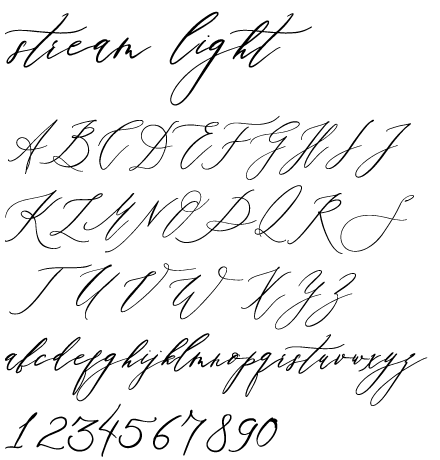 stream light
A B C D E F G H I J
K L M N O P Q R S
T U V W X Y Z
abcdefghijklmnopqrstuvwxyz
1234567890